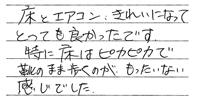 床とエアコン、きれいになって
とっても良かったです。
特に床はピカピカで
靴のまま歩くのが、もったいない
感じでした。